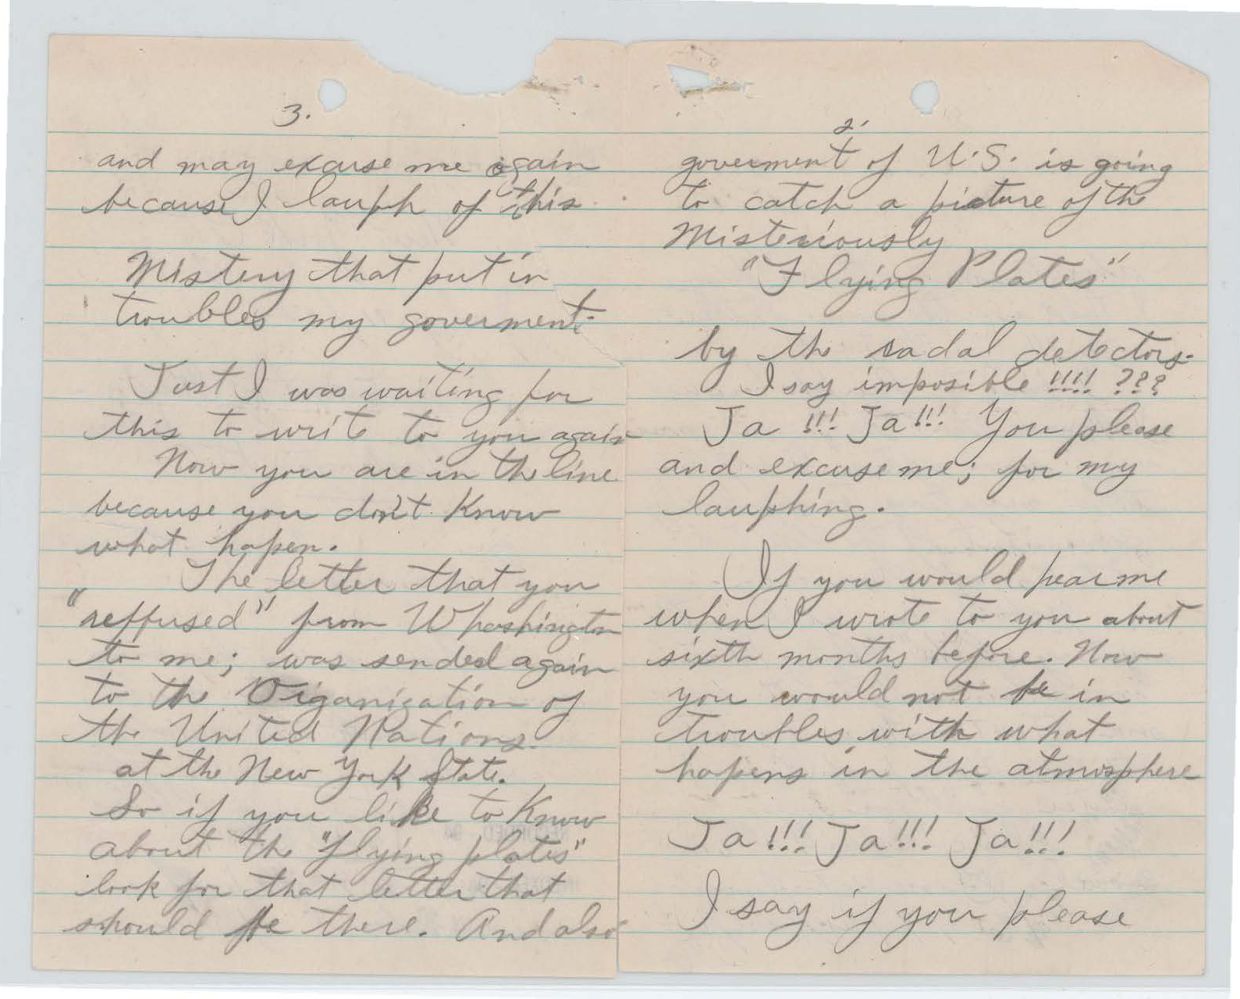 2.
goverment of U.S. is going
to catch a picture of the
Misteriously
"Flying Plates"
by the radal detectors.
I say imposible !!!! ???
Ja !!! Ja !!! You please
and excuse me; for my
lauphing.
If you would hear me
when I wrote to you about
sixth months before. Now
you would not be in
troubles with what
hapens in the atmosphere
Ja!!! Ja!!! Ja!!!
I say if you please
3.
and may excuse me again
because I lauph of this
Mistery that put in
troubles my goverment.
Just I was waiting for
this to write to you again
Now you are in the line
because you don't know
what hapen.
The letter that you
"reffused" from Whashington
to me; was sended again
to the Organization of
the United Nations.
at the New York State.
So if you like to know
about the "flying plates"
look for that letter that
should be there. And also